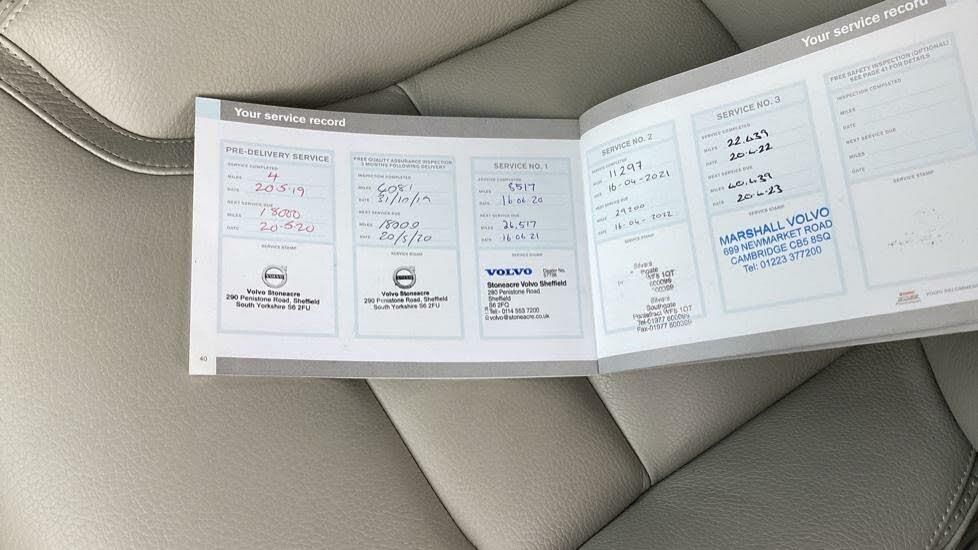 Your service record
PRE-DELIVERY SERVICE
SERVICE COMPLETED
MILES 4
DATE 20 5·19
NEXT SERVICE DUE
MILES 18000
DATE 20-5·20
SERVICE STAMP
VOLVO
Volvo Stoneacre
290 Penistone Road, Sheffield
South Yorkshire S6 2FU
FREE QUALITY ASSURANCE INSPECTION
3 MONTHS FOLLOWING DELIVERY
INSPECTION COMPLETED
MILES 6081
DATE 31/10/19
NEXT SERVICE DUE
MILES 18000
DATE 20/5/20
SERVICE STAMP
VOLVO
Volvo Stoneacre
290 Penistone Road, Sheffield
South Yorkshire S6 2FU
SERVICE NO. 1
SERVICE COMPLETED
MILES 8517
DATE 16·06·20
NEXT SERVICE DUE
MILES 26,517
DATE 16·06·21
SERVICE STAMP
VOLVO Dealer No.
Stoneacre Volvo Sheffield
290 Penistone Road,
Sheffield
S6 2FQ
Tel:- 0114 553 7200
volvo@stoneacre.co.uk
40
Your service record
SERVICE NO. 2
SERVICE COMPLETED
MILES 11297
DATE 16-04-2021
NEXT SERVICE DUE
MILES 29200
DATE 16-04-2022
SERVICE STAMP
Silvers
WF8 1QT
Silvers
Southgate
Pontefract WF8 1QT
Tel-01977 600099
SERVICE NO. 3
SERVICE COMPLETED
MILES 22.439
DATE 20·4·22
NEXT SERVICE DUE
MILES 40.439
DATE 20·4·23
SERVICE STAMP
MARSHALL VOLVO
699 NEWMARKET ROAD
CAMBRIDGE CB5 8SQ
Tel: 01223 377200
FREE SAFETY INSPECTION (OPTIONAL)
SEE PAGE 41 FOR DETAILS
INSPECTION COMPLETED
MILES
DATE
NEXT SERVICE DUE
MILES
DATE
SERVICE STAMP